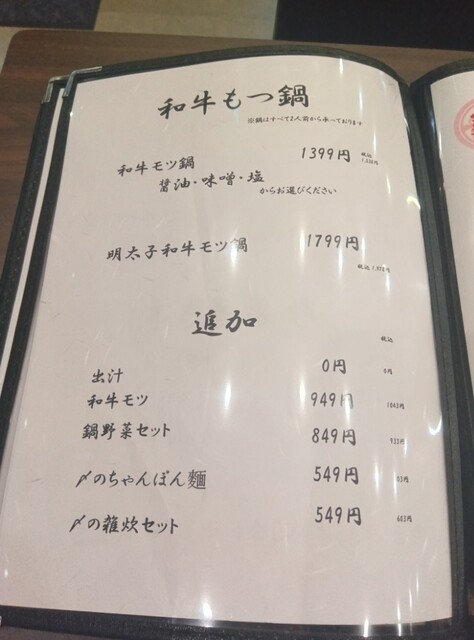 和牛もつ鍋
※鍋はすべて2人前から承っております
和牛モツ鍋 1399円 税込
醤油・味噌・塩
からお選びください
明太子和牛モツ鍋 1799円
税込
追加
税込
出汁 0円 0円
和牛モツ 949円 1043円
鍋野菜セット 849円 933円
〆のちゃんぽん麵 549円 03円
〆の雑炊セット 549円 603円